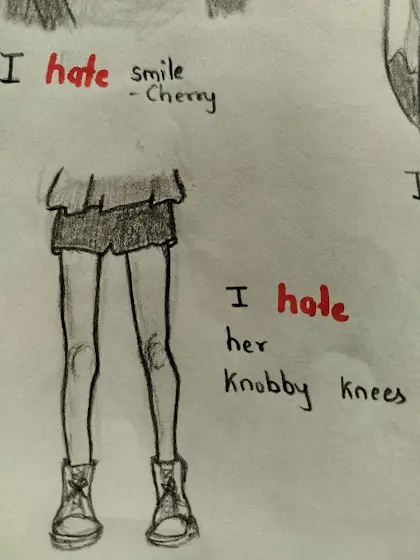 I hate smile
-Cherry
I hate
her
Knobby Knees